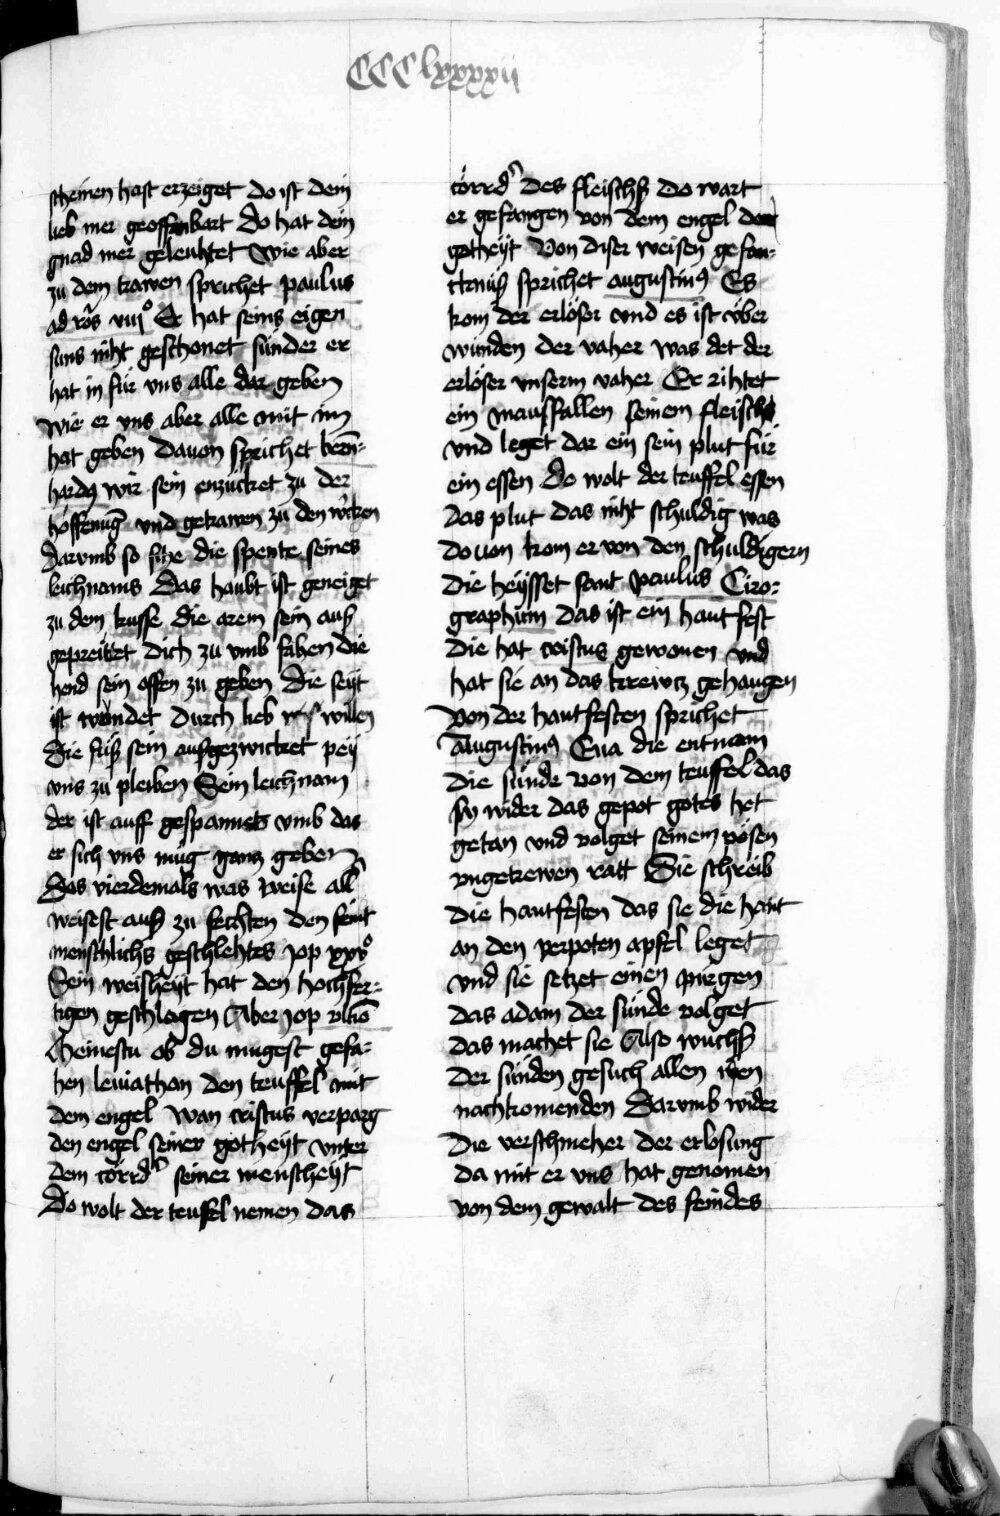 CCClxxxxii
scheinen hast erzeiget Do ist dein
lieb mer geoffenbart Do hat dein
gnad mer geleuhtet Wie aber
zu dem trawen sprichet paulus
ad ro͞s viijͦ Er hat seins eigen
suns niht geschonet sunder er
hat in für vns alle dar geben
wie er vns aber alle mit im
hat geben Dauon sprichet bern-
hardꝰ wir sein enzücket zu der
hoffenūg vnd getrawen zu den
Darvmb so sihe die seines
leichnams Das haubt ist geneiget
zu dem kusse die arem sein auß
gepreittet dich zu vmb fahen die
hend sein offen zu geben Die seyt
ist wundet durch lieb willen
die füß sein aufgezwicket pey
vns zu pleiben Sein leichnam
der ist auff gespannet vmb das
er sich vns müg ganz geben
Das vierdemals was weise all
weisest auß zu fechten den feint
menschlichs geschlehtes Jop xxvͦ
Sein weisheyt hat den hochfer-
tigen geschlagen Aber Jop
Meinestu ob du mugest gefa-
hen leuiathan den teuffel mit
dem engel Wan cristus verparg
den engel seiner gotheyt vnter
dem törrd᷑ seiner menscheyt
Do wolt der teuffel nemen das
törrd᷑ des fleischß Do wart
er gefangen von dem engel der
gotheyt Von diser weisen gefan-
cknüß sprichet augustinꝰ Es
kom der erlöser vnd es ist vber
wunden der vaher was det der
erlöser vnserm vaher Er rihtet
ein meusfallen seinem fleisch
vnd leget dar ein sein plut für
ein essen Do wolt der teuffel essen
das plut das niht schuldig was
Do uon kom er von den schuldigern
Die heysset sant paulus Ciro-
graphum das ist ein hantfest
Die hat cristus gewonen vnd
hat sie an das krewtz gehangen
Von der hantfesten sprichet
Augustinꝰ Eua die entnam
die sünde von dem teuffel das
sy wider das gepot gotes het
getan vnd volget seinem pösen
vngetrewen ratt Sie schreib
die hantfesten das sie die hant
an den verpoten apfel leget
vnd sie setzet einen purgen
das adam der sünde volget
das machet sie Also wuchß
der sünden gesuch allen iren
nachkomenden Darvmb wider
die verschmeher der erlosung
da mit er vns hat genomen
von dem gewalt des feindes